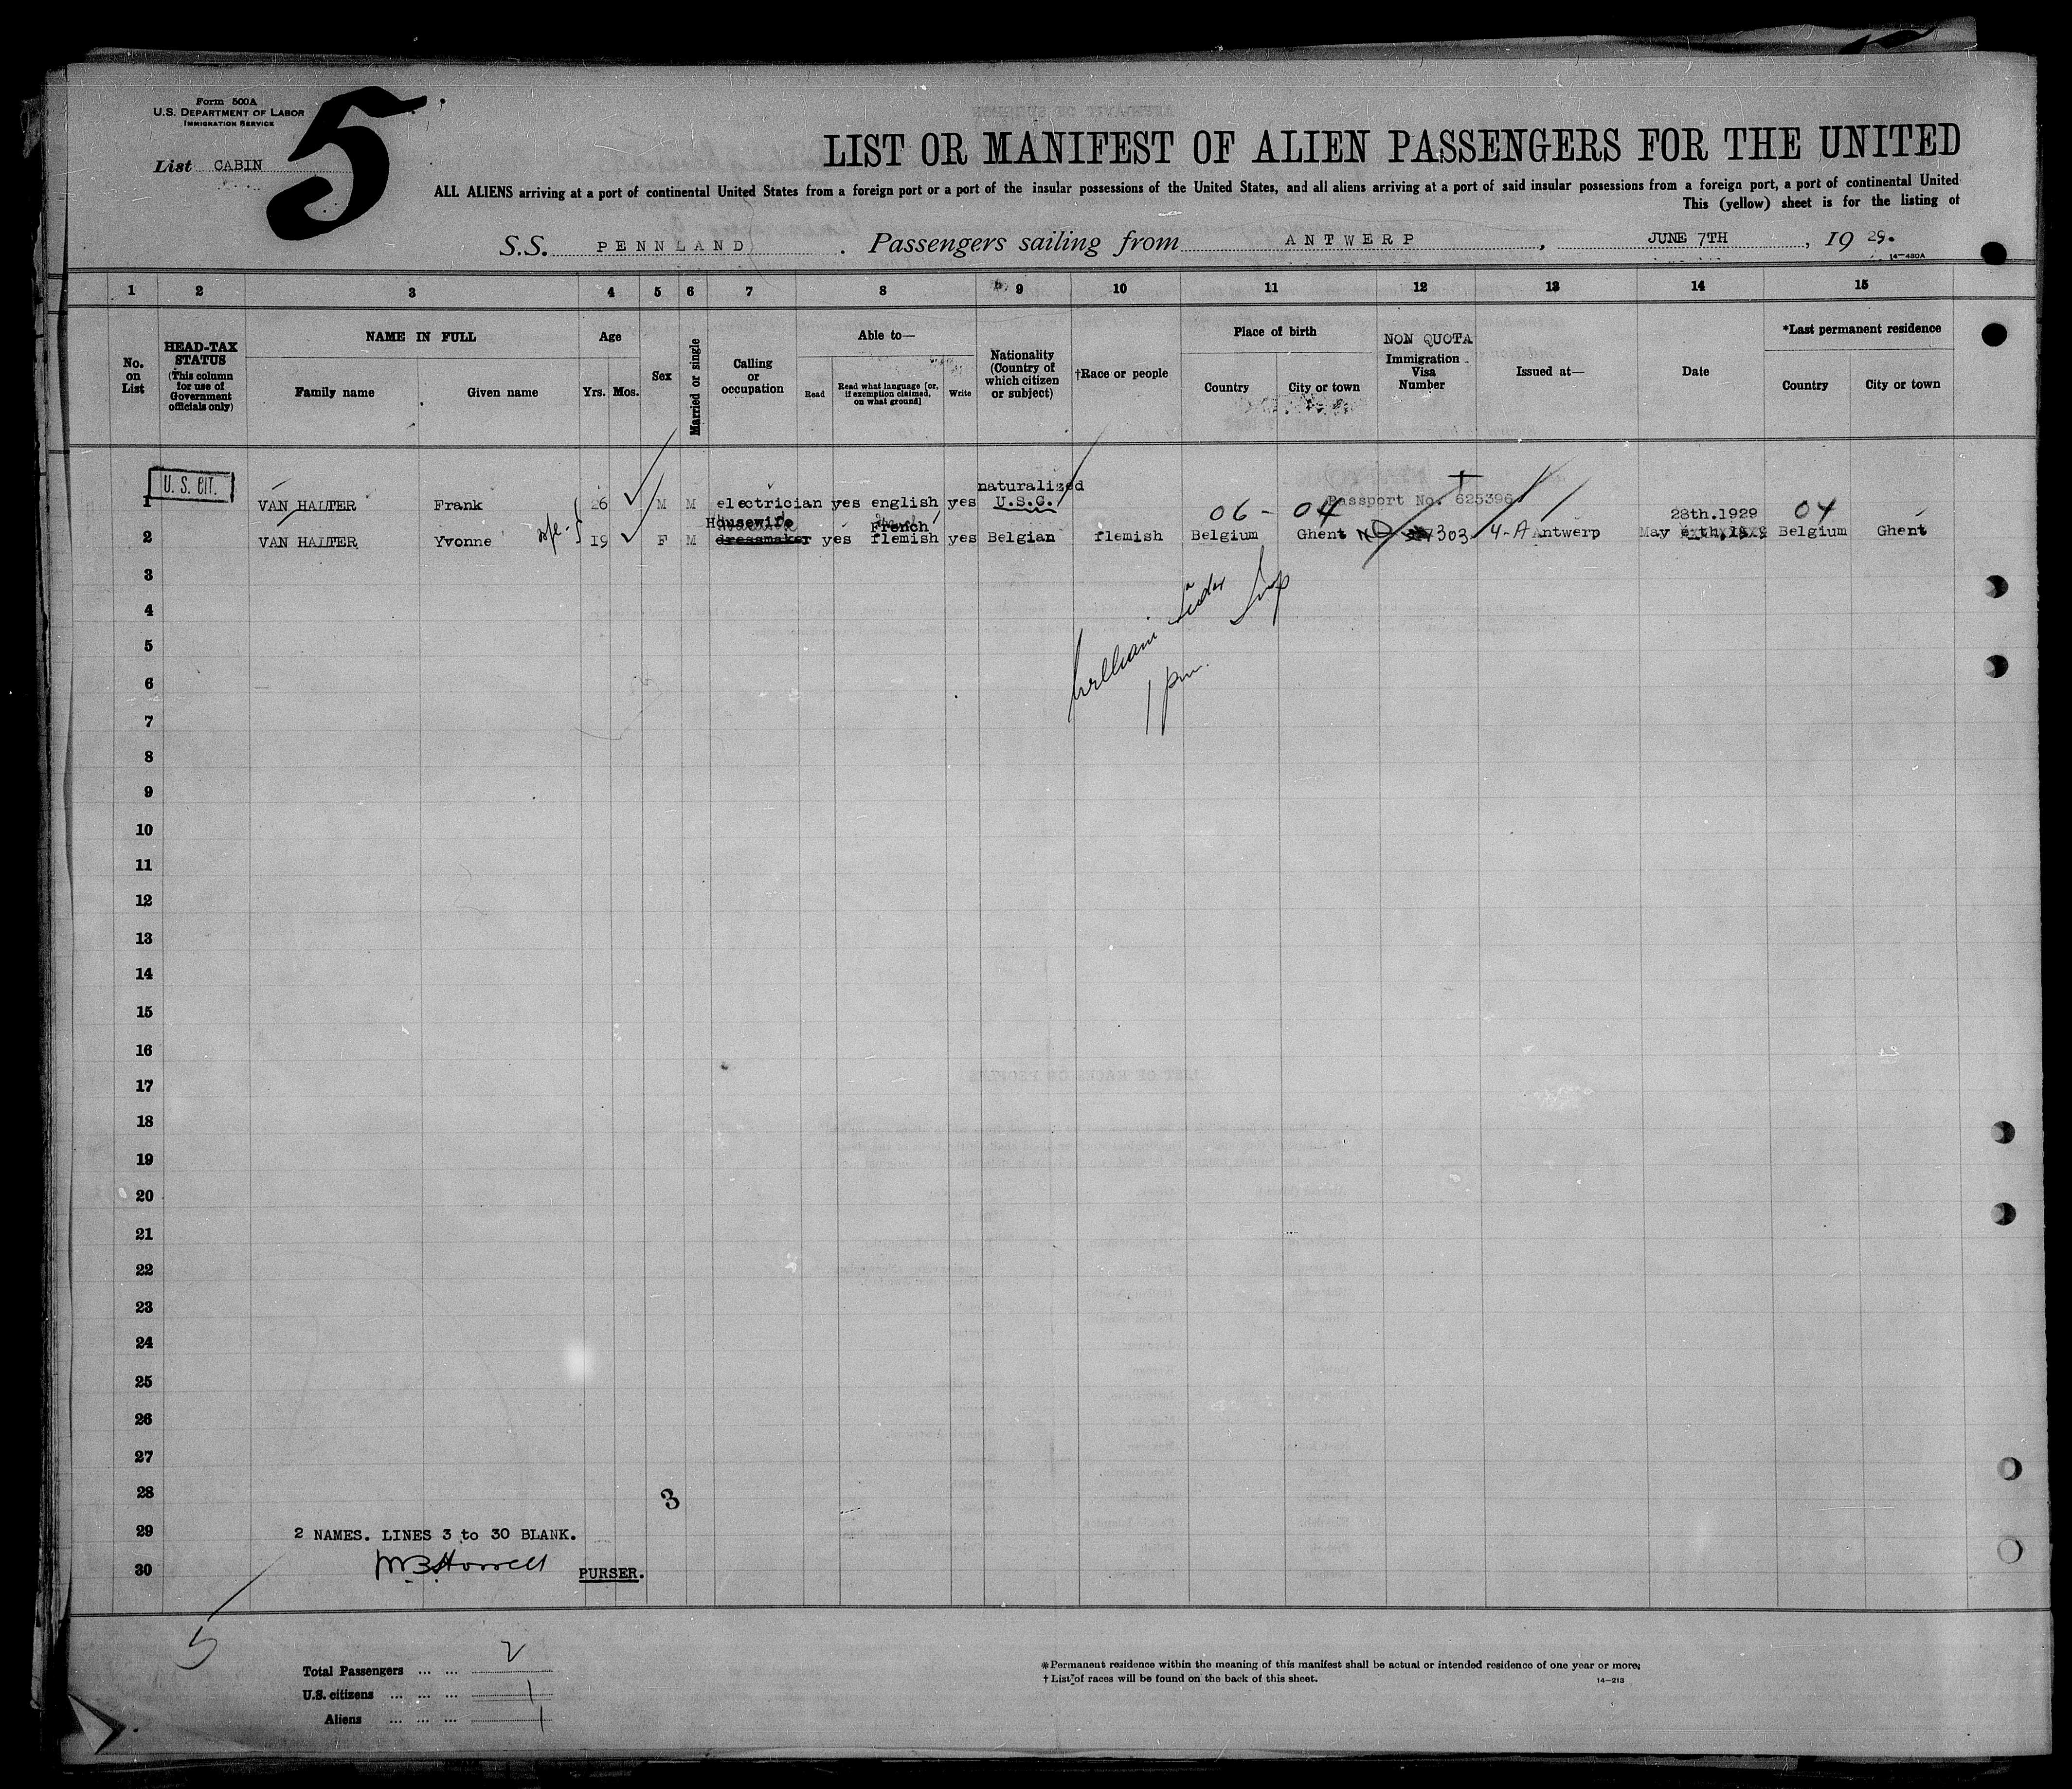 Form 500A
U.S. DEPARTMENT OF LABOR
IMMIGRATION SERVICE
List CABIN
5
LIST OR MANIFEST OF ALIEN PASSENGERS FOR THE UNITED
ALL ALIENS arriving at a port of continental United States from a foreign port or a port of the insular possessions of the United States, and all aliens arriving at a port of said insular possessions from a foreign port, a port of continental United
This (yellow) sheet is for the listing of
S.S. PENNLAND. Passengers sailing from ANTWERP, JUNE 7TH, 19 29.
14-430A
1 2 3 4 5 6 7 8 9 10 11 12 13 14 15
No. on List
HEAD-TAX STATUS (This column for use of Government officials only)
NAME IN FULL
Family name Given name
Age
Yrs. Mos.
Sex
Married or single
Calling or occupation
Able to—
Read
Read what language [or, if exemption claimed, on what ground]
Write
Nationality (Country of which citizen or subject)
†Race or people
Place of birth
Country City or town
NON QUOTA
Immigration Visa Number
Issued at—
Date
*Last permanent residence
Country City or town
U. S. CIT.
naturalized
1 VAN HALTER Frank 26 M M electrician yes english yes U.S.C. Passport No. 625396
Housewife French 06 - 04 28th.1929 04
2 VAN HALTER Yvonne wife 19 F M dressmaker yes flemish yes Belgian flemish Belgium Ghent NQ 303 4-A Antwerp May Belgium Ghent
3
4
5
6
7
8
9
10
11
12
13
14
15
16
17
18
19
20
21
22
23
24
25
26
27
28 3
29 2 NAMES. LINES 3 to 30 BLANK.
30 PURSER.
William
1 pm.
5
Total Passengers ... ... 2
U.S. citizens ... ... ... 1
Aliens ... ... ... 1
*Permanent residence within the meaning of this manifest shall be actual or intended residence of one year or more.
† List of races will be found on the back of this sheet.
14-213